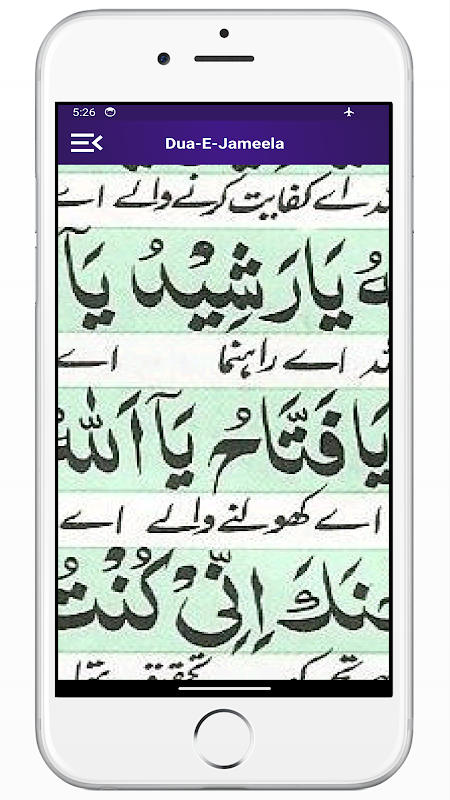 5:26
Dua-E-Jameela
اے کفایت کرنے والے اے
يَا رَشِيْدُ يَآ
اے راہنما اے
يَا فَتَّاحُ يَآ اَللّٰهُ
اے کھولنے والے اے
اِنِّىْ كُنْتُ